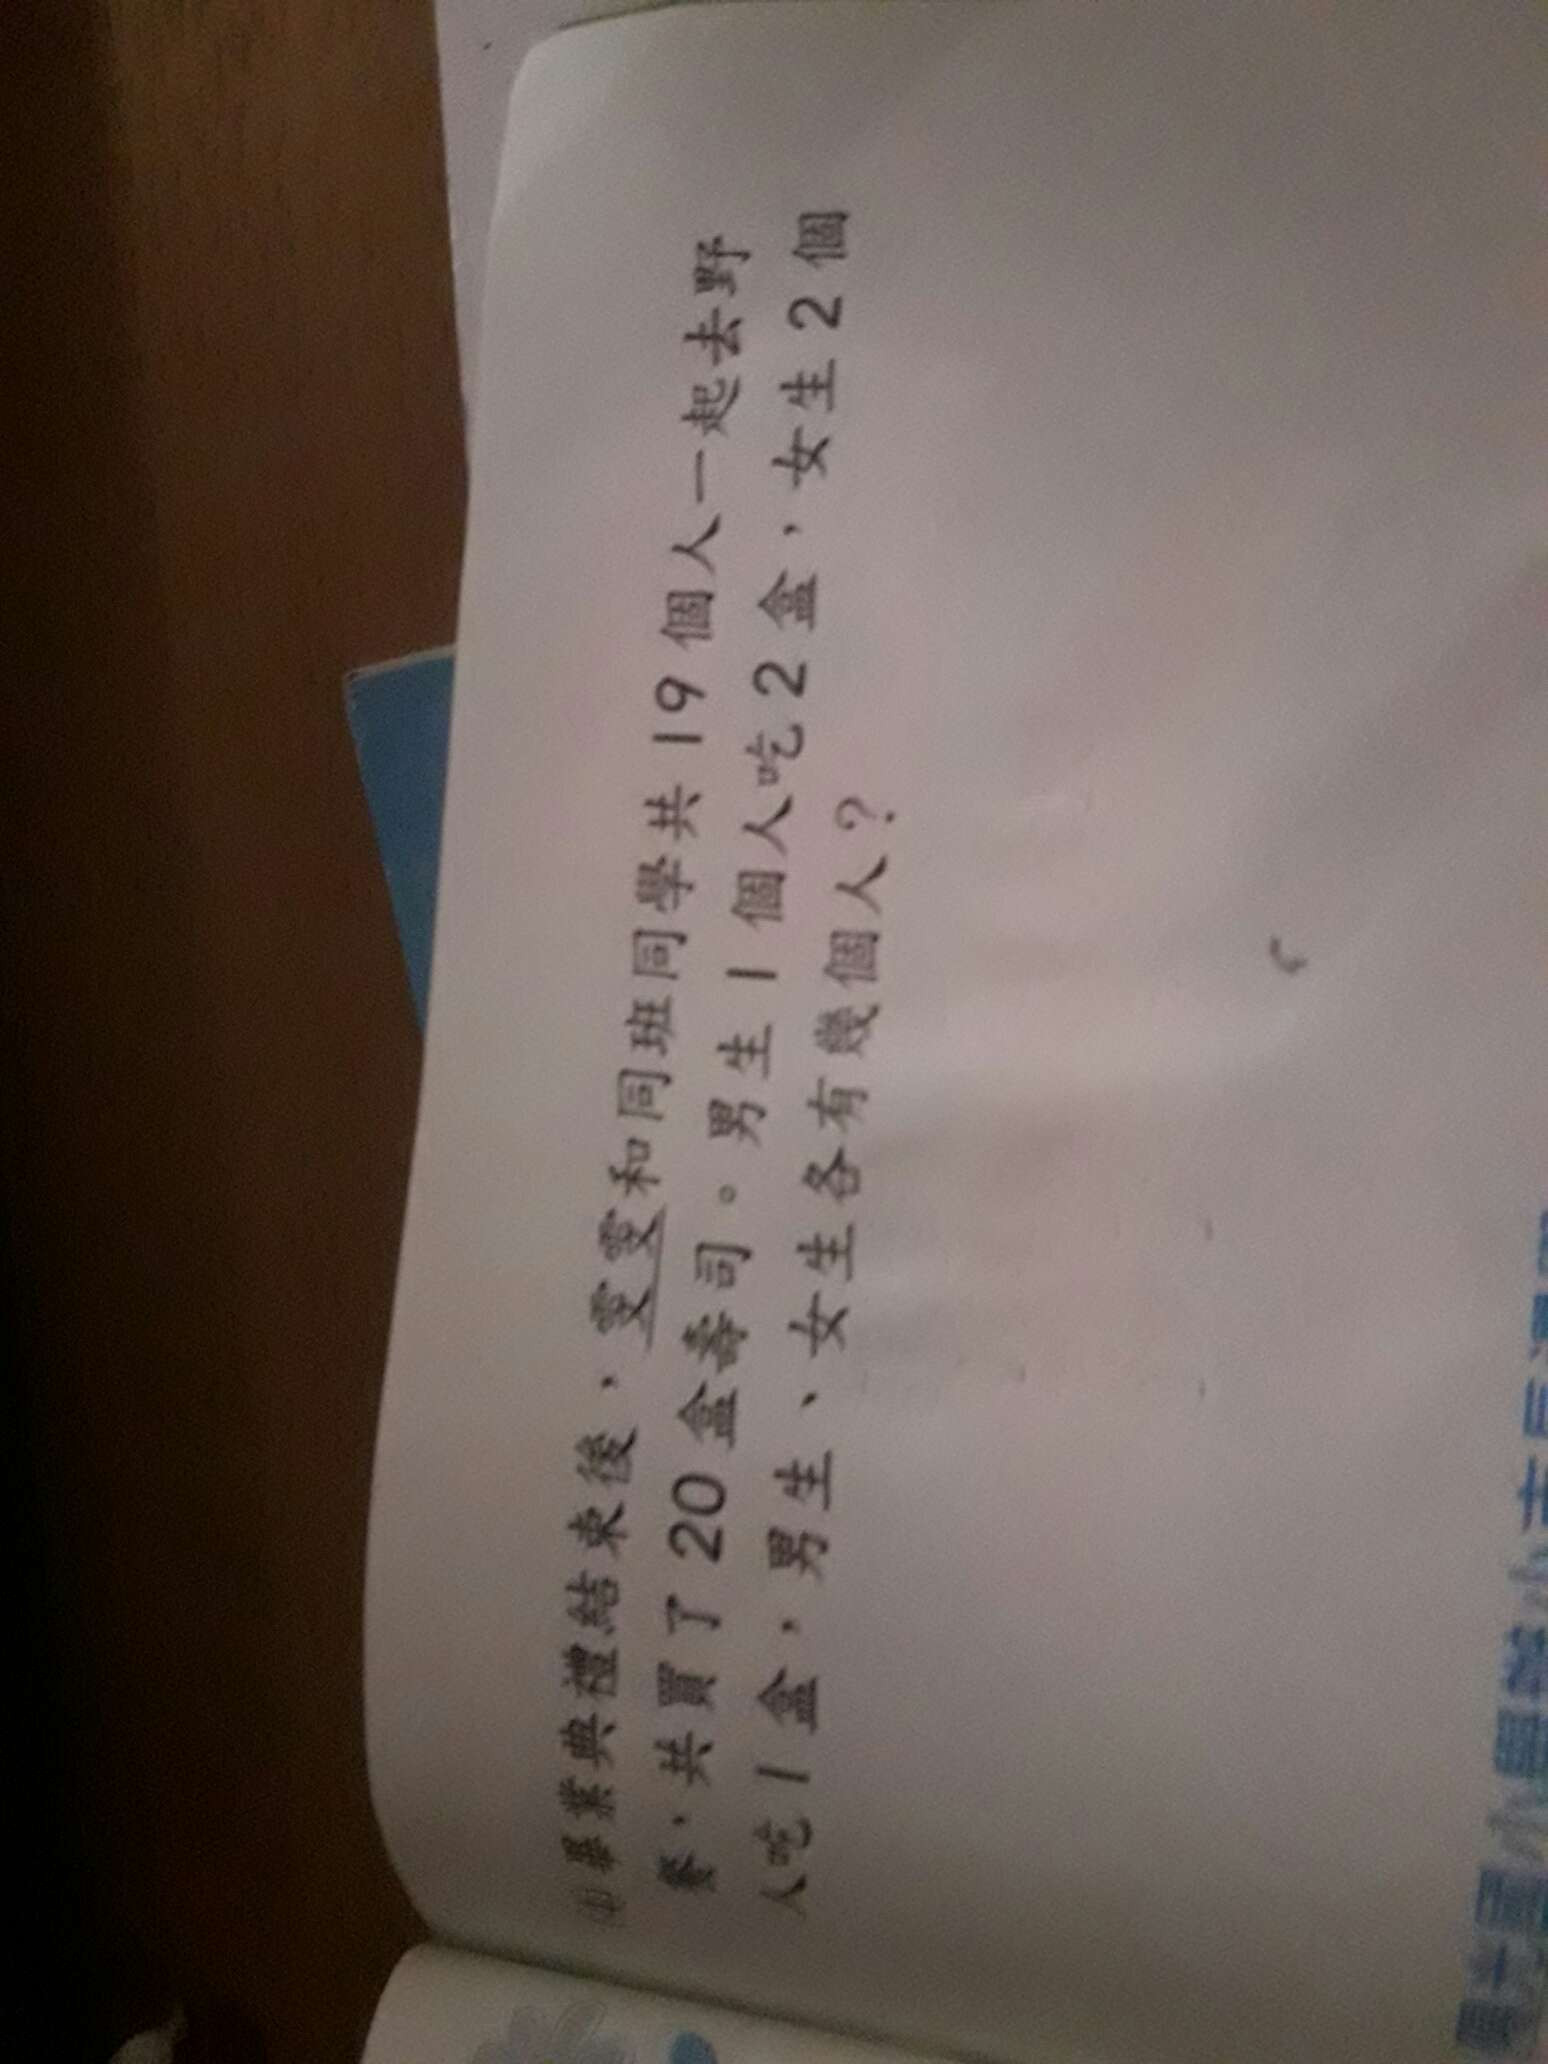 (1) 畢業典禮結束後，雯雯和同班同學共19個人一起去野
餐，共買了20盒壽司。男生1個人吃2盒，女生2個
人吃1盒，男生、女生各有幾個人？